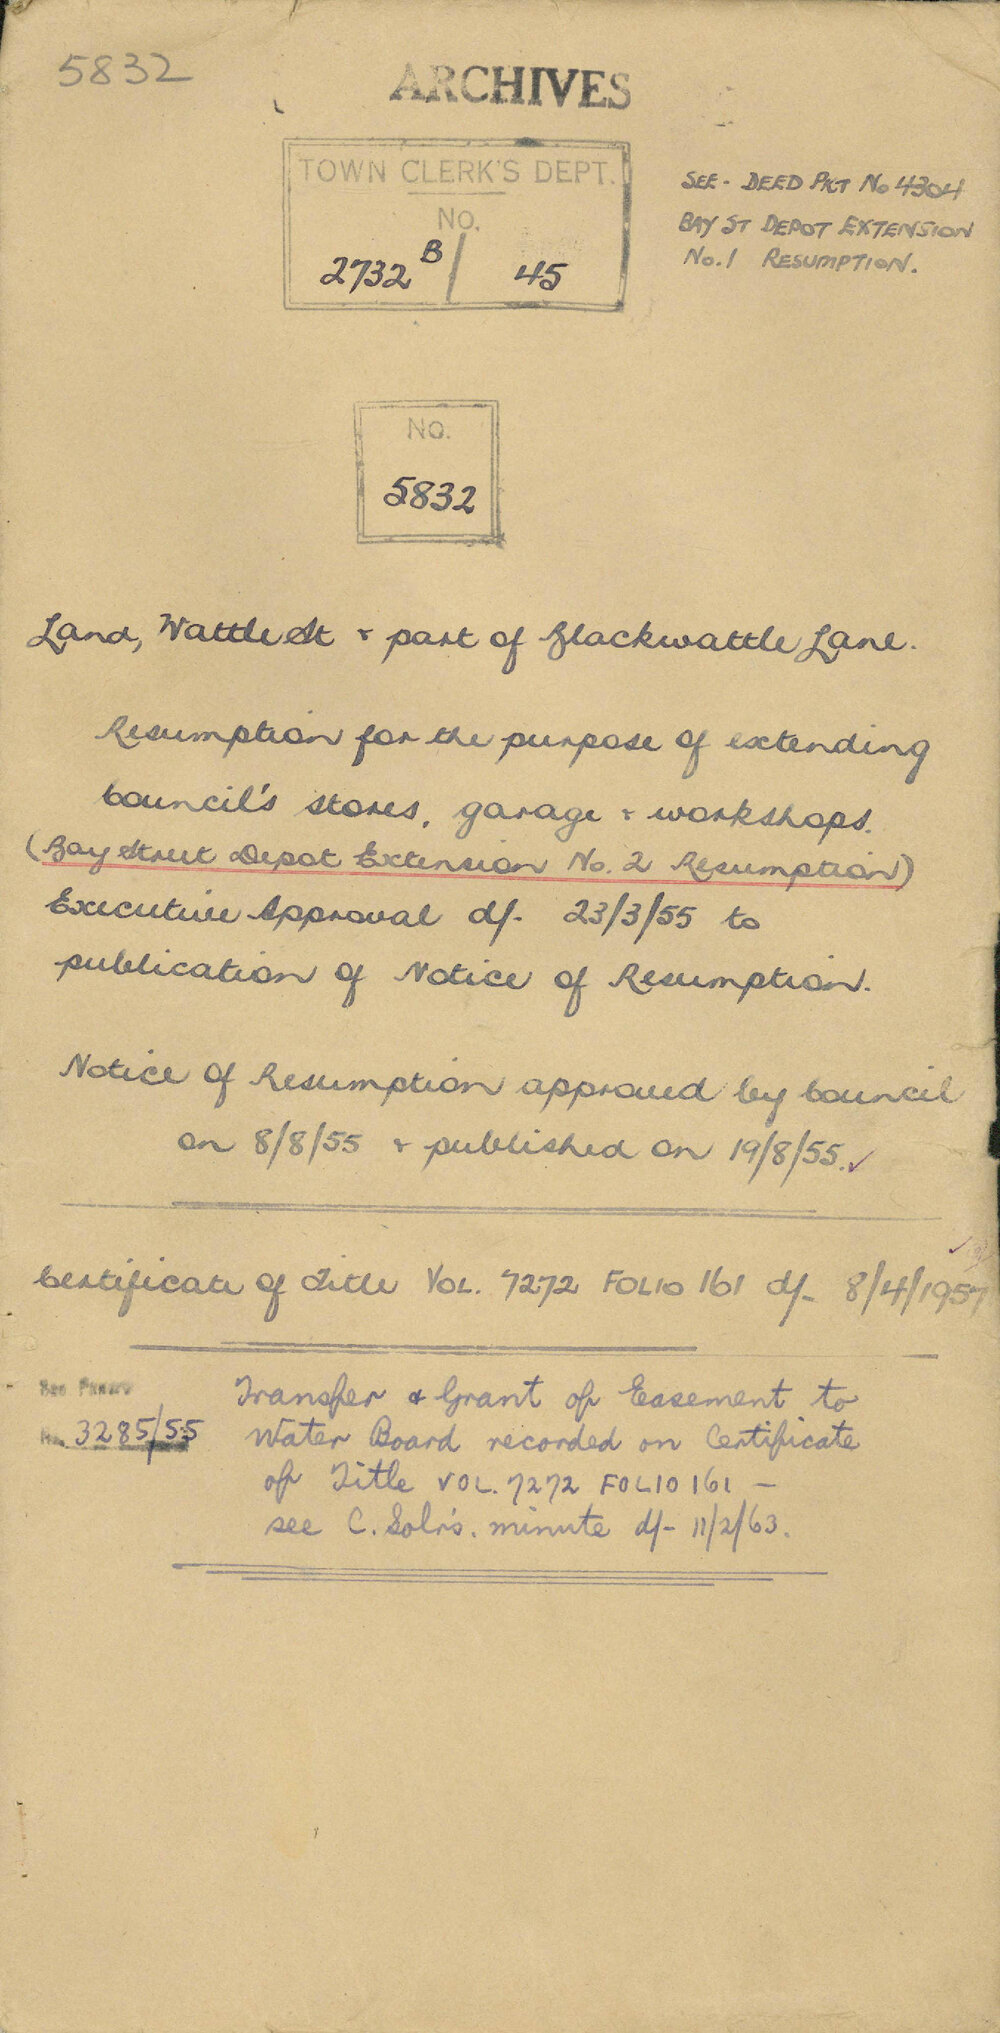 5832
ARCHIVES
TOWN CLERK'S DEPT.
NO.
2732 B / 45
SEE - DEED PKT No 4304
BAY ST DEPOT EXTENSION
No. 1 RESUMPTION.
NO.
5832
Land, Wattle St & part of Blackwattle Lane.
Resumption for the purpose of extending
Council's stores, garage & workshops.
(Bay Street Depot Extension No. 2 Resumption)
Executive Approval d/- 23/3/55 to
publication of Notice of Resumption.
Notice of Resumption approved by Council
on 8/8/55 & published on 19/8/55.
Certificate of Title VOL. 7272 FOLIO 161 d/- 8/4/1957
See Papers
No. 3285/55
Transfer & Grant of Easement to
Water Board recorded on Certificate
of Title VOL. 7272 FOLIO 161 -
see C. Solr's. minute d/- 11/2/63.